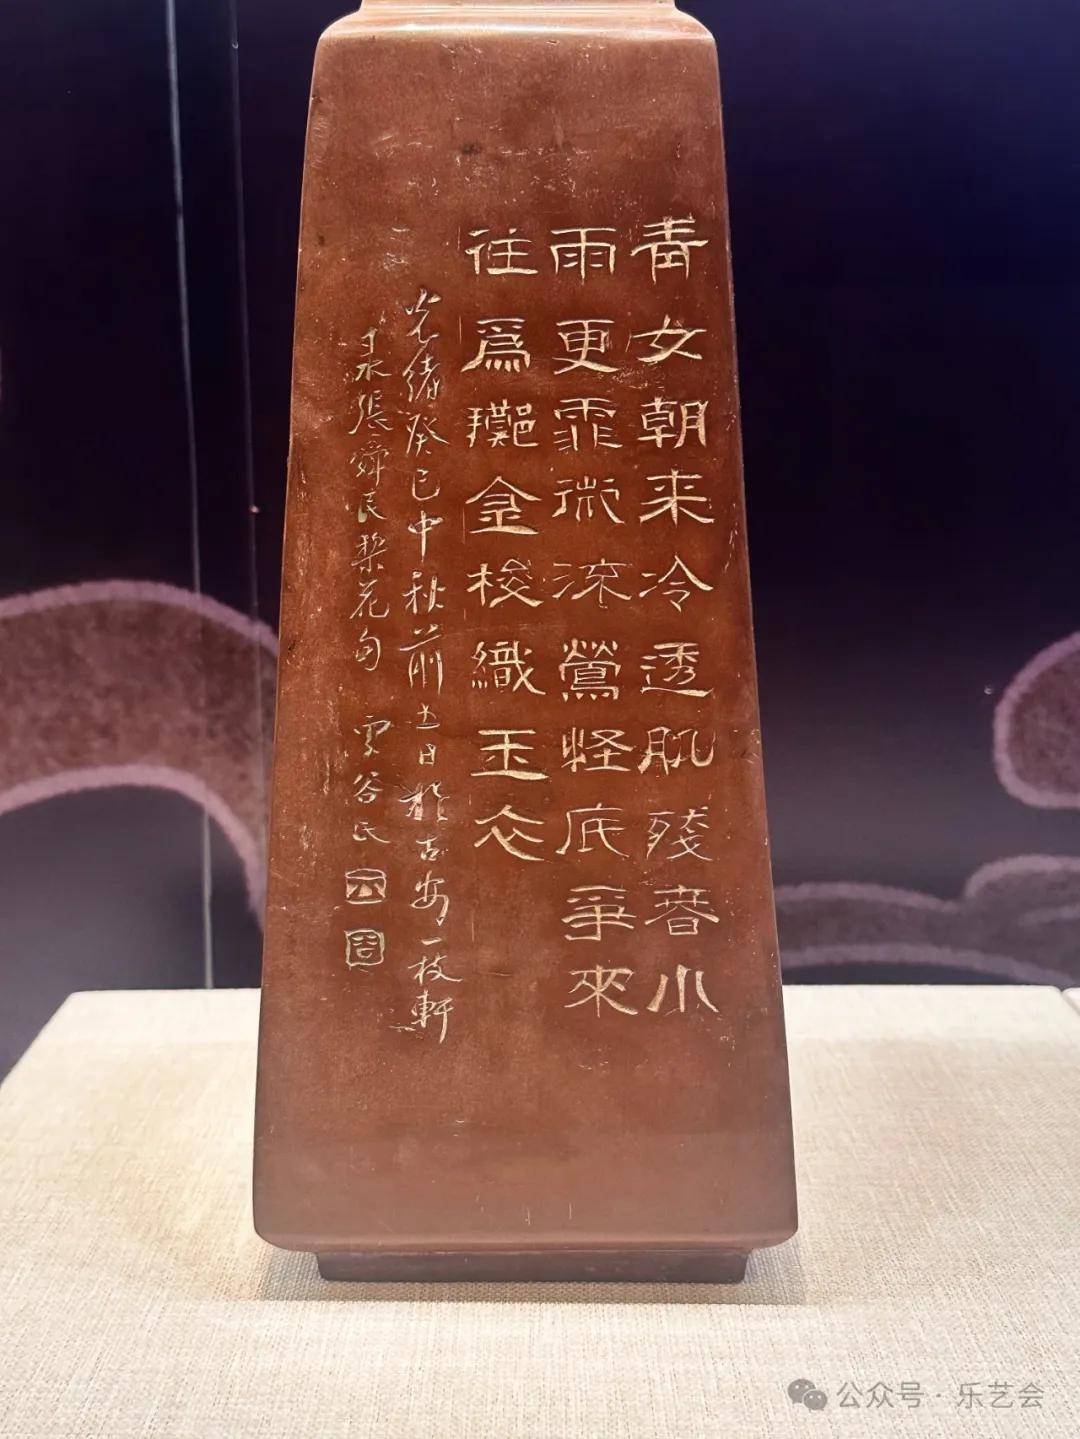 青女朝来冷透肌殘春小
雨更霏微流鶯怪底爭來
往爲擲金梭織玉衣
光緒癸巳中秋前五日於古安一枝軒
录張舜民梨花句 雲谷氏
公众号·乐艺会